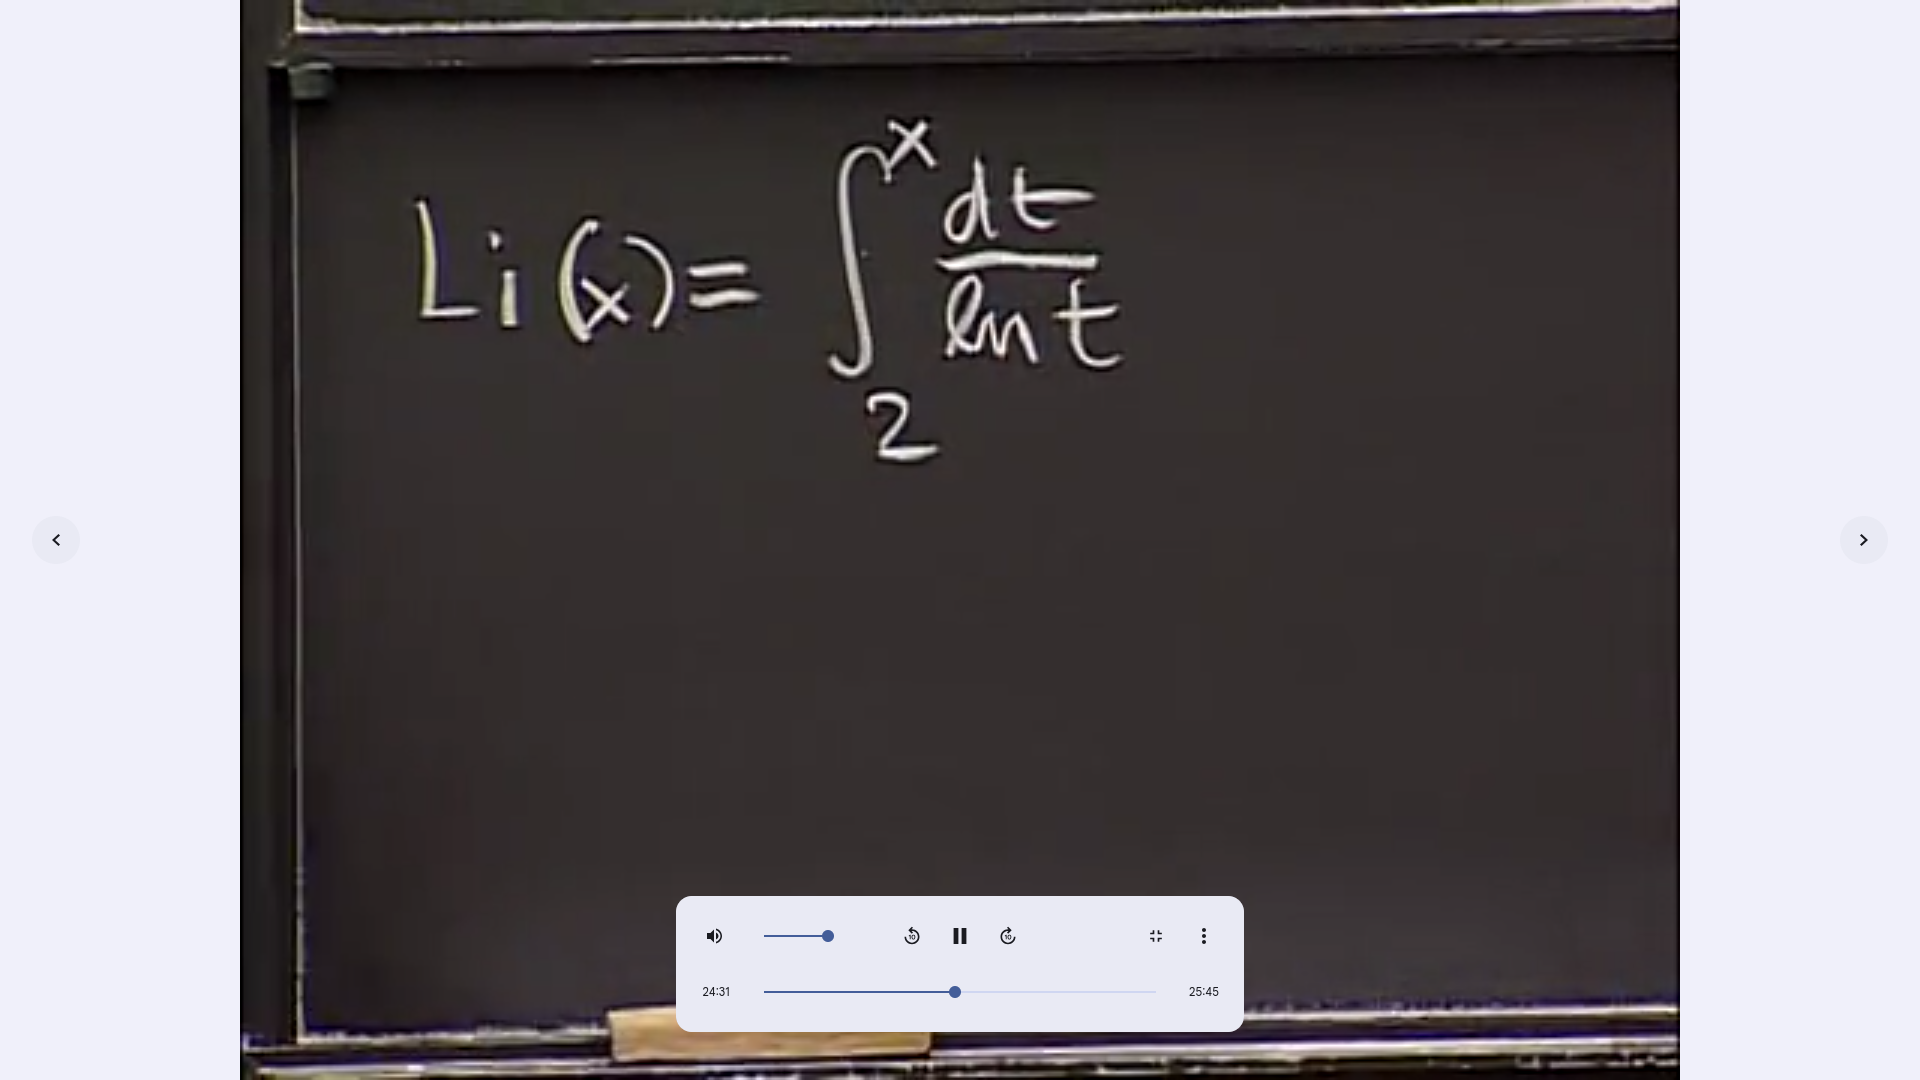 Li(x) = ∫₂ˣ dt/ln t
24:31
25:45